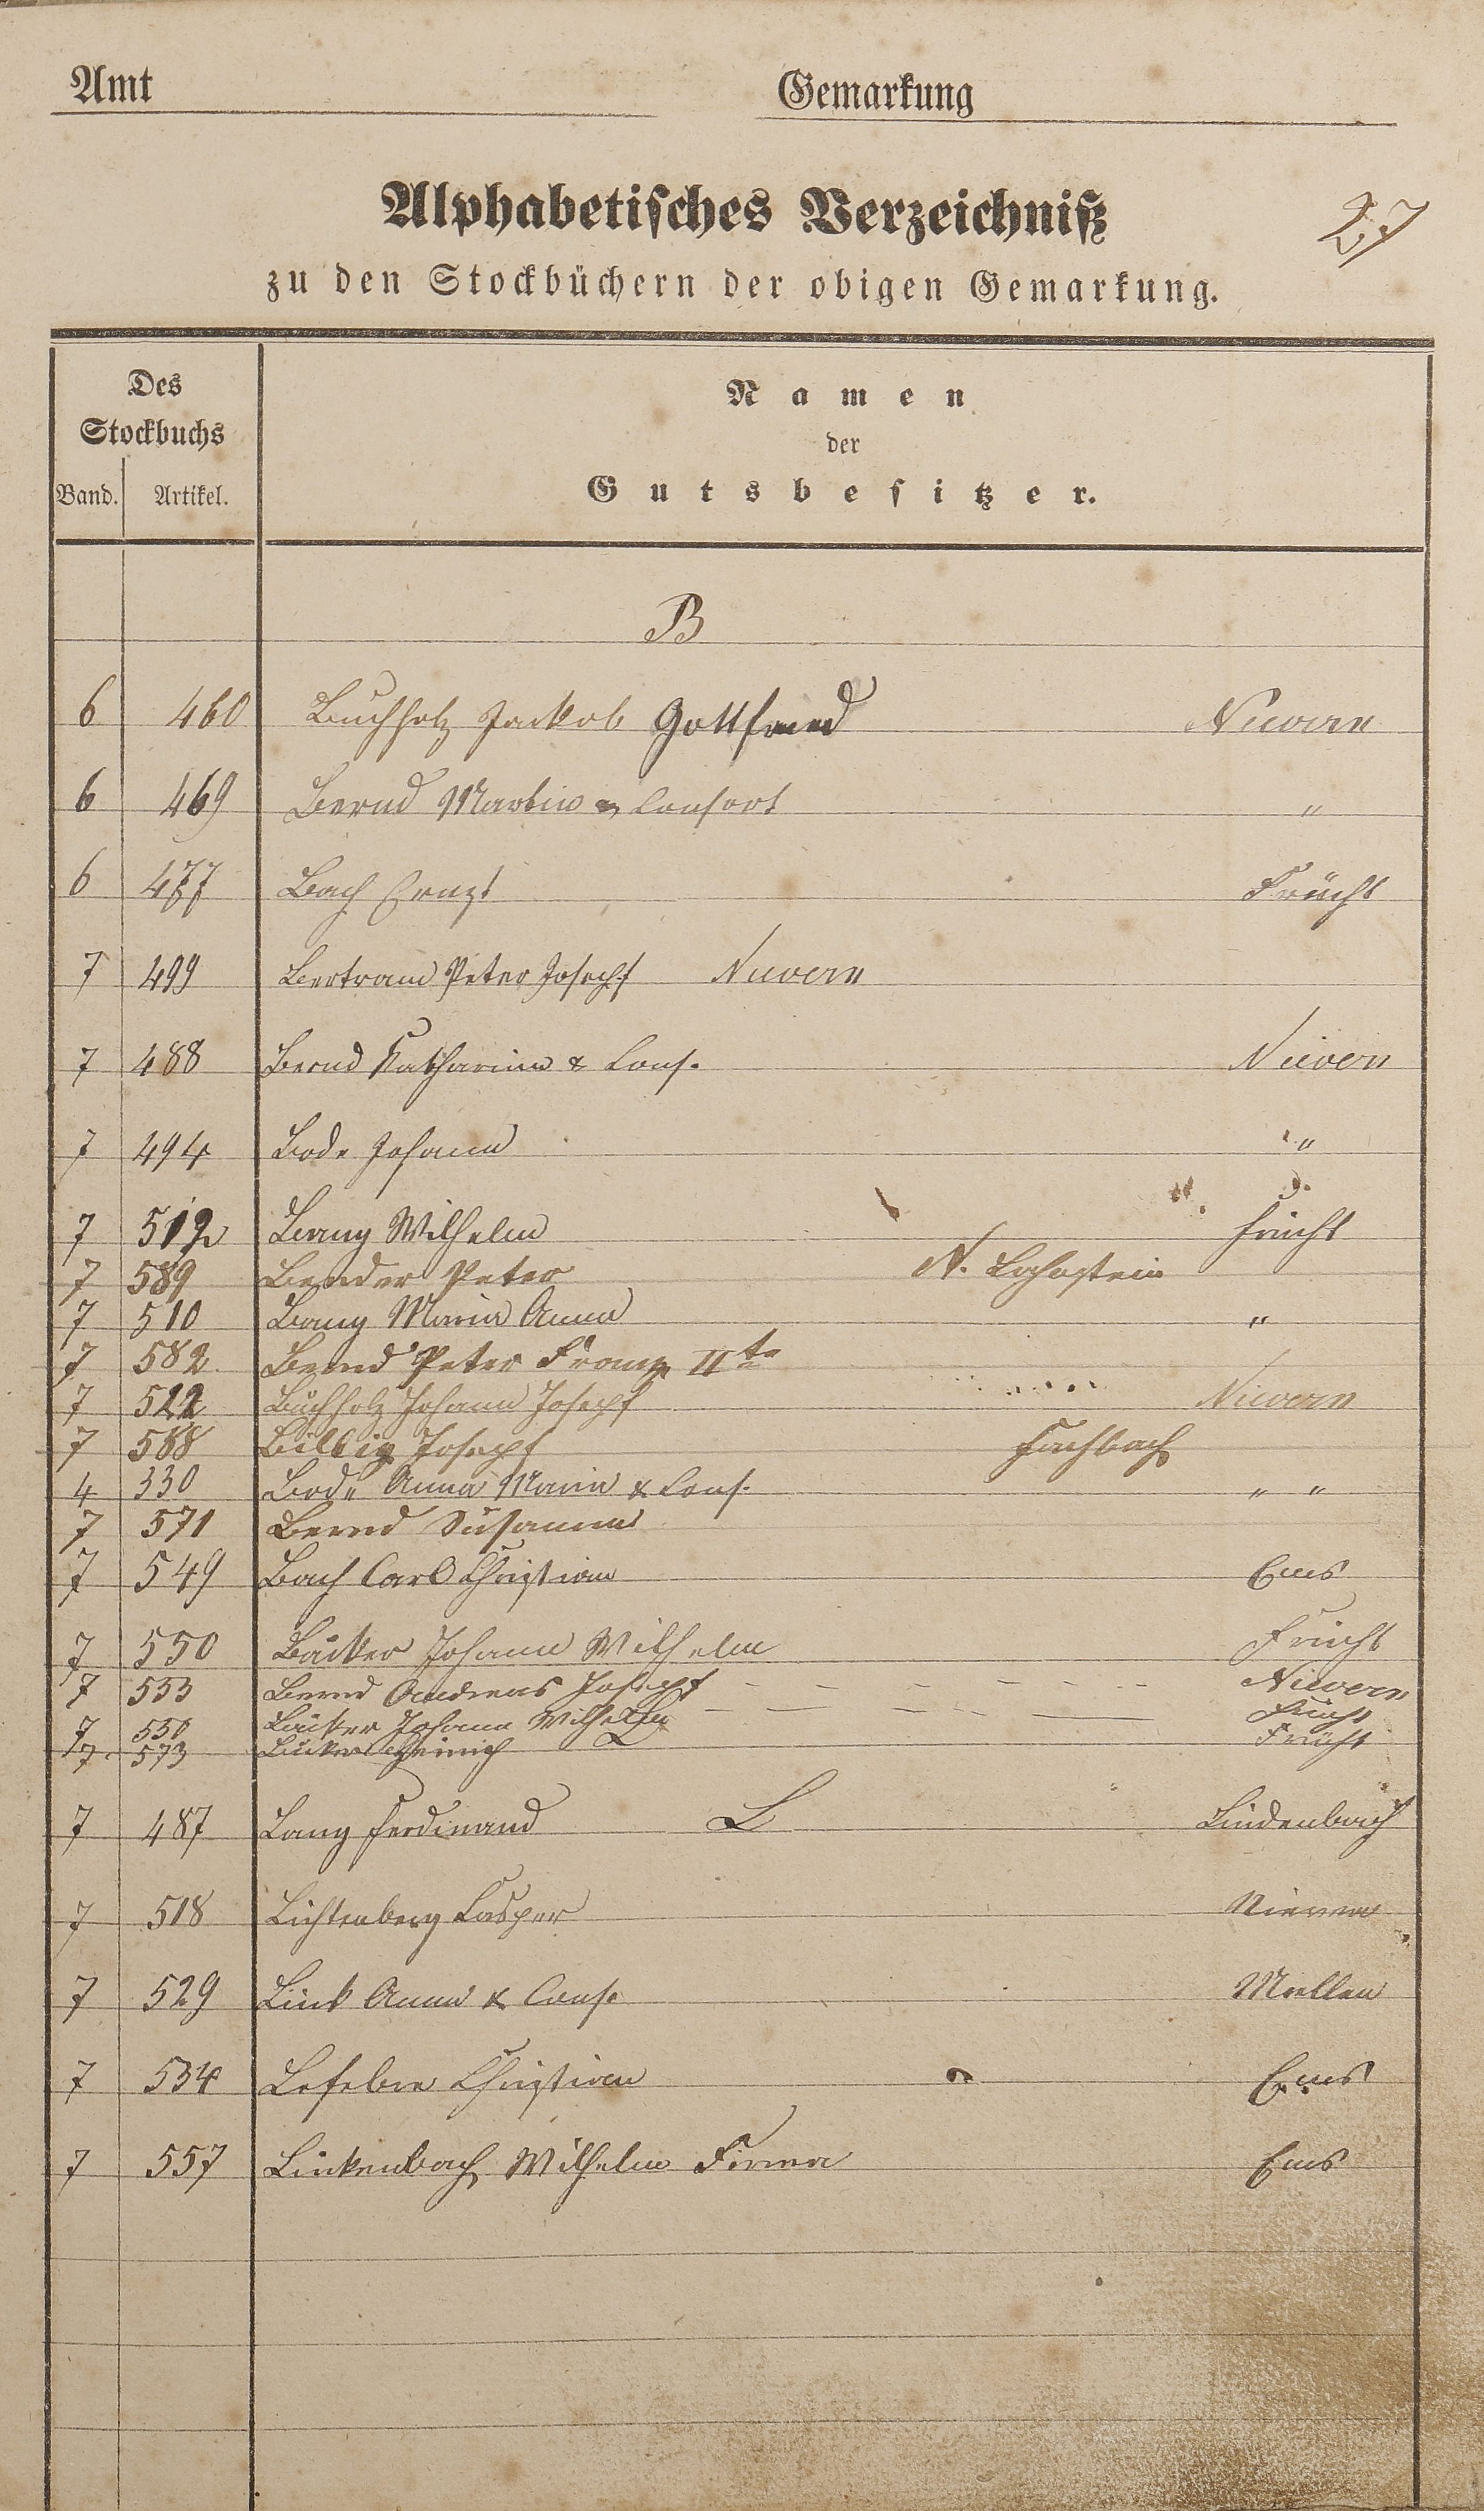 Amt Gemarkung
Alphabetisches Verzeichniß
27
zu den Stockbüchern der obigen Gemarkung.
Des Stockbuchs
Band. Artikel.
Namen
der
Gutsbesitzer.
B
6 460 Buchholz Jakob Gottfried Nievern
6 469 Bernd Martin & Consort "
6 477 Bach Ernst Frücht
7 499 Bertram Peter Joseph Nievern
7 488 Bernd Katharina & Cons. Nievern
7 494 Bode Johann "
7 512 Bang Wilhelm Frücht
7 589 Bender Peter N. Lahnstein
7 510 Bang Maria Anna "
7 582 Bernd Peter Franz IIte
7 522 Buchholz Johann Joseph Nievern
7 588 Billig Joseph Fachbach
4 330 Bode Anna Maria & Cons. " "
7 571 Bernd Susanna
7 549 Bach Carl Christian Ems
7 550 Bäcker Johann Wilhelm Frücht
7 553 Bernd Andreas Joseph Nievern
7 550 Bäcker Johann Wilhelm Frücht
7. 573 Bäcker Heinrich Frücht
L
7 487 Lang Ferdinand Lindenbach
7 518 Lichtenberg Casper Nievern
7 529 Link Anna & Cons. Miellen
7 534 Lefebre Christian Ems
7 557 Linkenbach Wilhelm Firma Ems